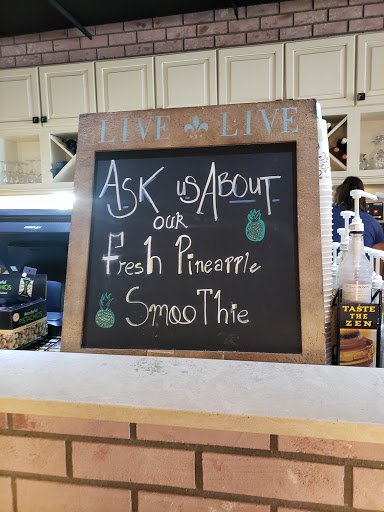 LIVE ⚜ LIVE
ASK us ABOUT
our
fresh Pineapple
SmooThie
TASTE
THE
ZEN